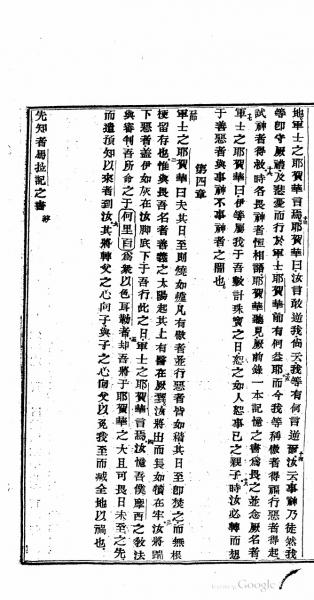 地軍士之耶賀華言焉耶賀華曰汝言敢逆我倘云我等有何言逆爾汝云事神乃徒然我
等卽守厥禮及悲憂而行於軍士耶賀華前有何益耶而今我等稱傲者得福行惡者得起
試神者得救時各畏神者恒相語耶賀華聽見厥前錄一本記憶之書爲畏之並念厥名者
軍士之耶賀華曰伊等屬我于吾數計珠寶之日恕之如人恕事已之親子時汝必轉而想
于善惡者與事神不事神者之間也
第四章
軍士之耶賀華曰夫其日至則燒如爐凡有傲者並行惡者皆如稭其日至卽焚之而無根
梗留存也惟與畏吾名者善義之太陽起其上有醫在厥翼汝將出而長如犢在牢汝將踹
下惡者蓋伊如灰在汝脚底下于吾行此之日軍士之耶賀華言焉汝憶吾僕摩西之敎法
與審判吾所命之于何里百爲衆以色耳勒者却吾將于耶賀華之大且可畏日未至之先
而遣預知以來者到汝其將轉父之心向子與子之心向父以免我至而滅全地以禍也
先知者馬拉記之書 終
Google